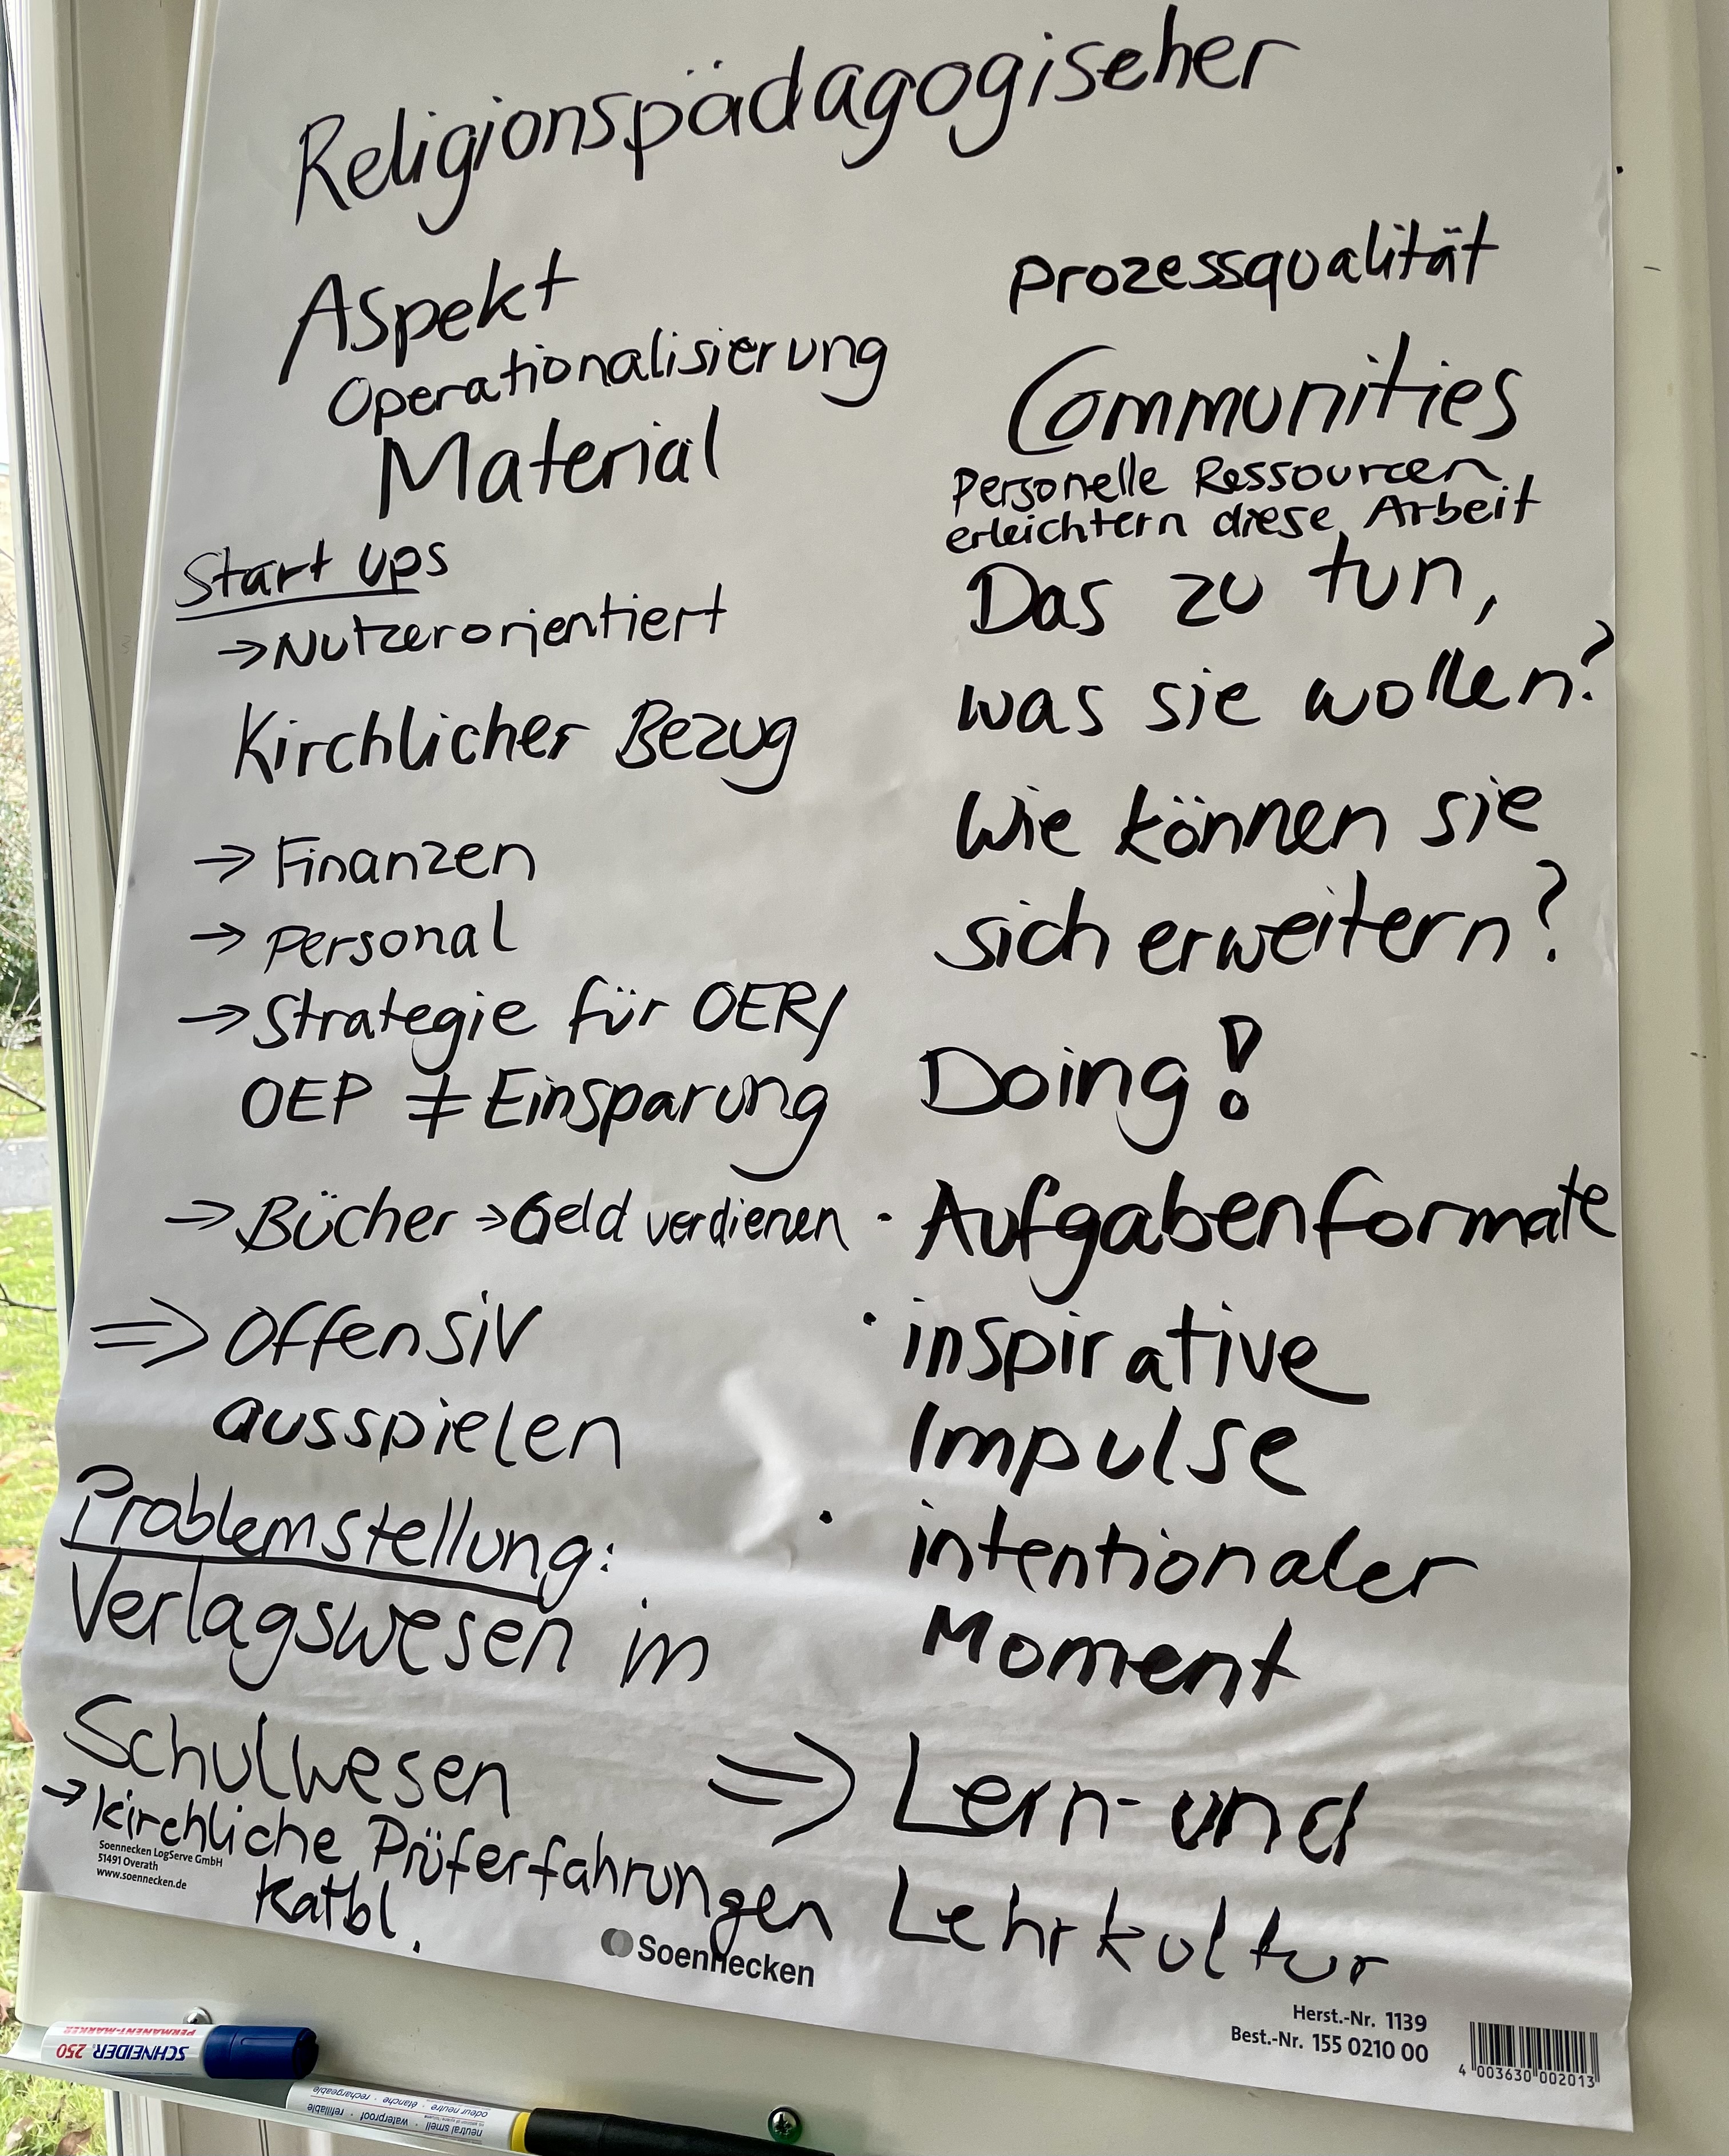 Religionspädagogischer
Aspekt
Operationalisierung
Material
Start ups
→ Nutzerorientiert
Kirchlicher Bezug
→ Finanzen
→ Personal
→ Strategie für OER/
OEP ≠ Einsparung
→ Bücher → Geld verdienen
⇒ Offensiv
ausspielen
Problemstellung:
Verlagswesen im
Schulwesen
→ kirchliche Prüferfahrungen
Katbl.
Prozessqualität
Communities
Personelle Ressourcen
erleichtern diese Arbeit
Das zu tun,
was sie wollen?
Wie können sie
sich erweitern?
Doing!
· Aufgabenformate
· inspirative
Impulse
· intentionaler
Moment
⇒ Lern- und
Lehrkultur
Soennecken LogServe GmbH
51491 Overath
www.soennecken.de
Soennecken
Herst.-Nr. 1139
Best.-Nr. 155 0210 00
4 003630 002013
SCHNEIDER 250
PERMANENT-MARKER
neutral smell · waterproof · refillable
odeur neutre · étanche · rechargeable